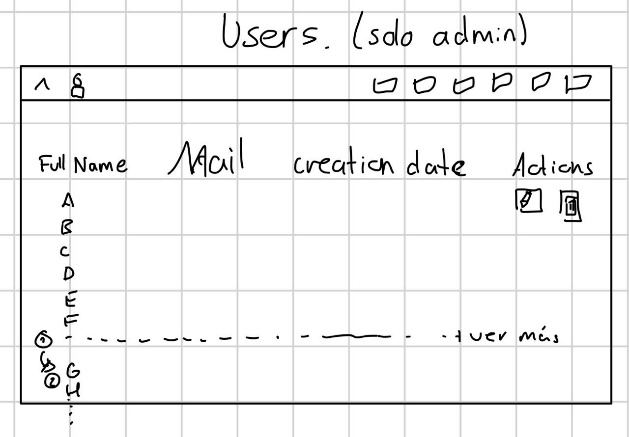 Users. (solo admin)
Full Name Mail creation date Actions
A
B
C
D
E
F
1 + ver más
2 G
H